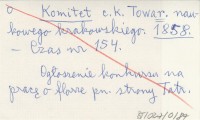 Komitet c.k. Towar. nau-
kowego krakowskiego. 1858.
– Czas nr 154.
Ogłoszenie konkursu na
pracę o florze pn. strony Tatr.